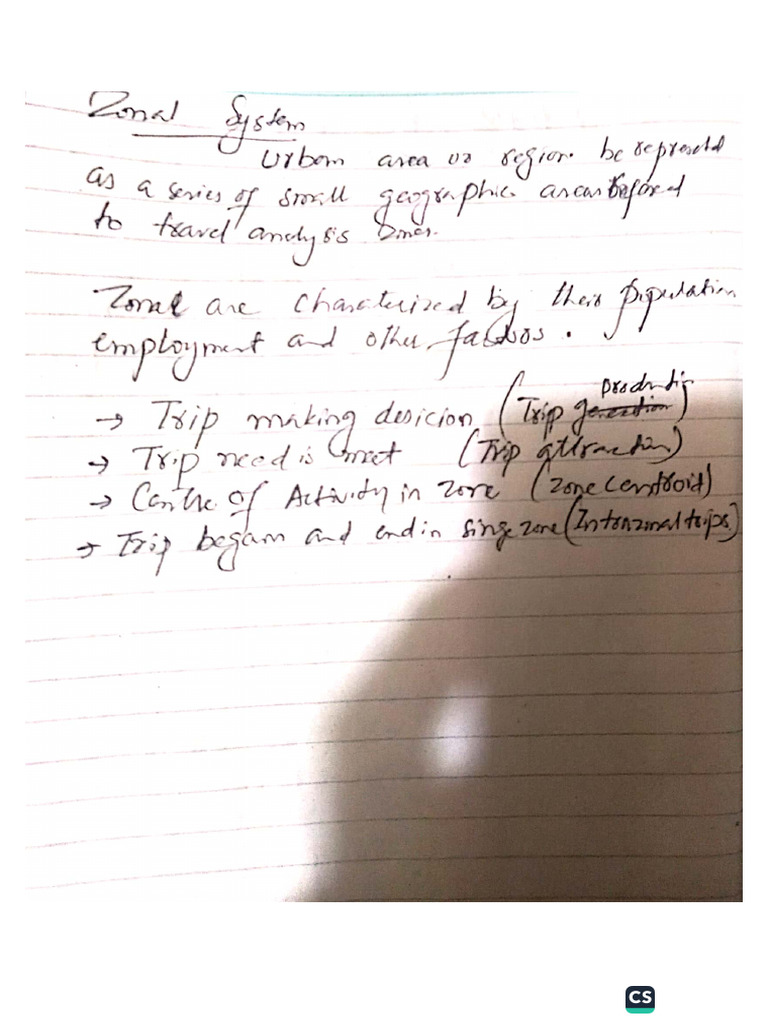 Zonal System
Urban area or region be represented
as a series of small geographic areas refered
to travel analysis zones.
Zonal are charaterized by their population
employment and other factors.
→ Trip making desicion (Trip generation production)
→ Trip need is meet (Trip attraction)
→ Centre of Activity in zone (zone centroid)
→ Trip began and end in singe zone (Intrazonal trips)
CS